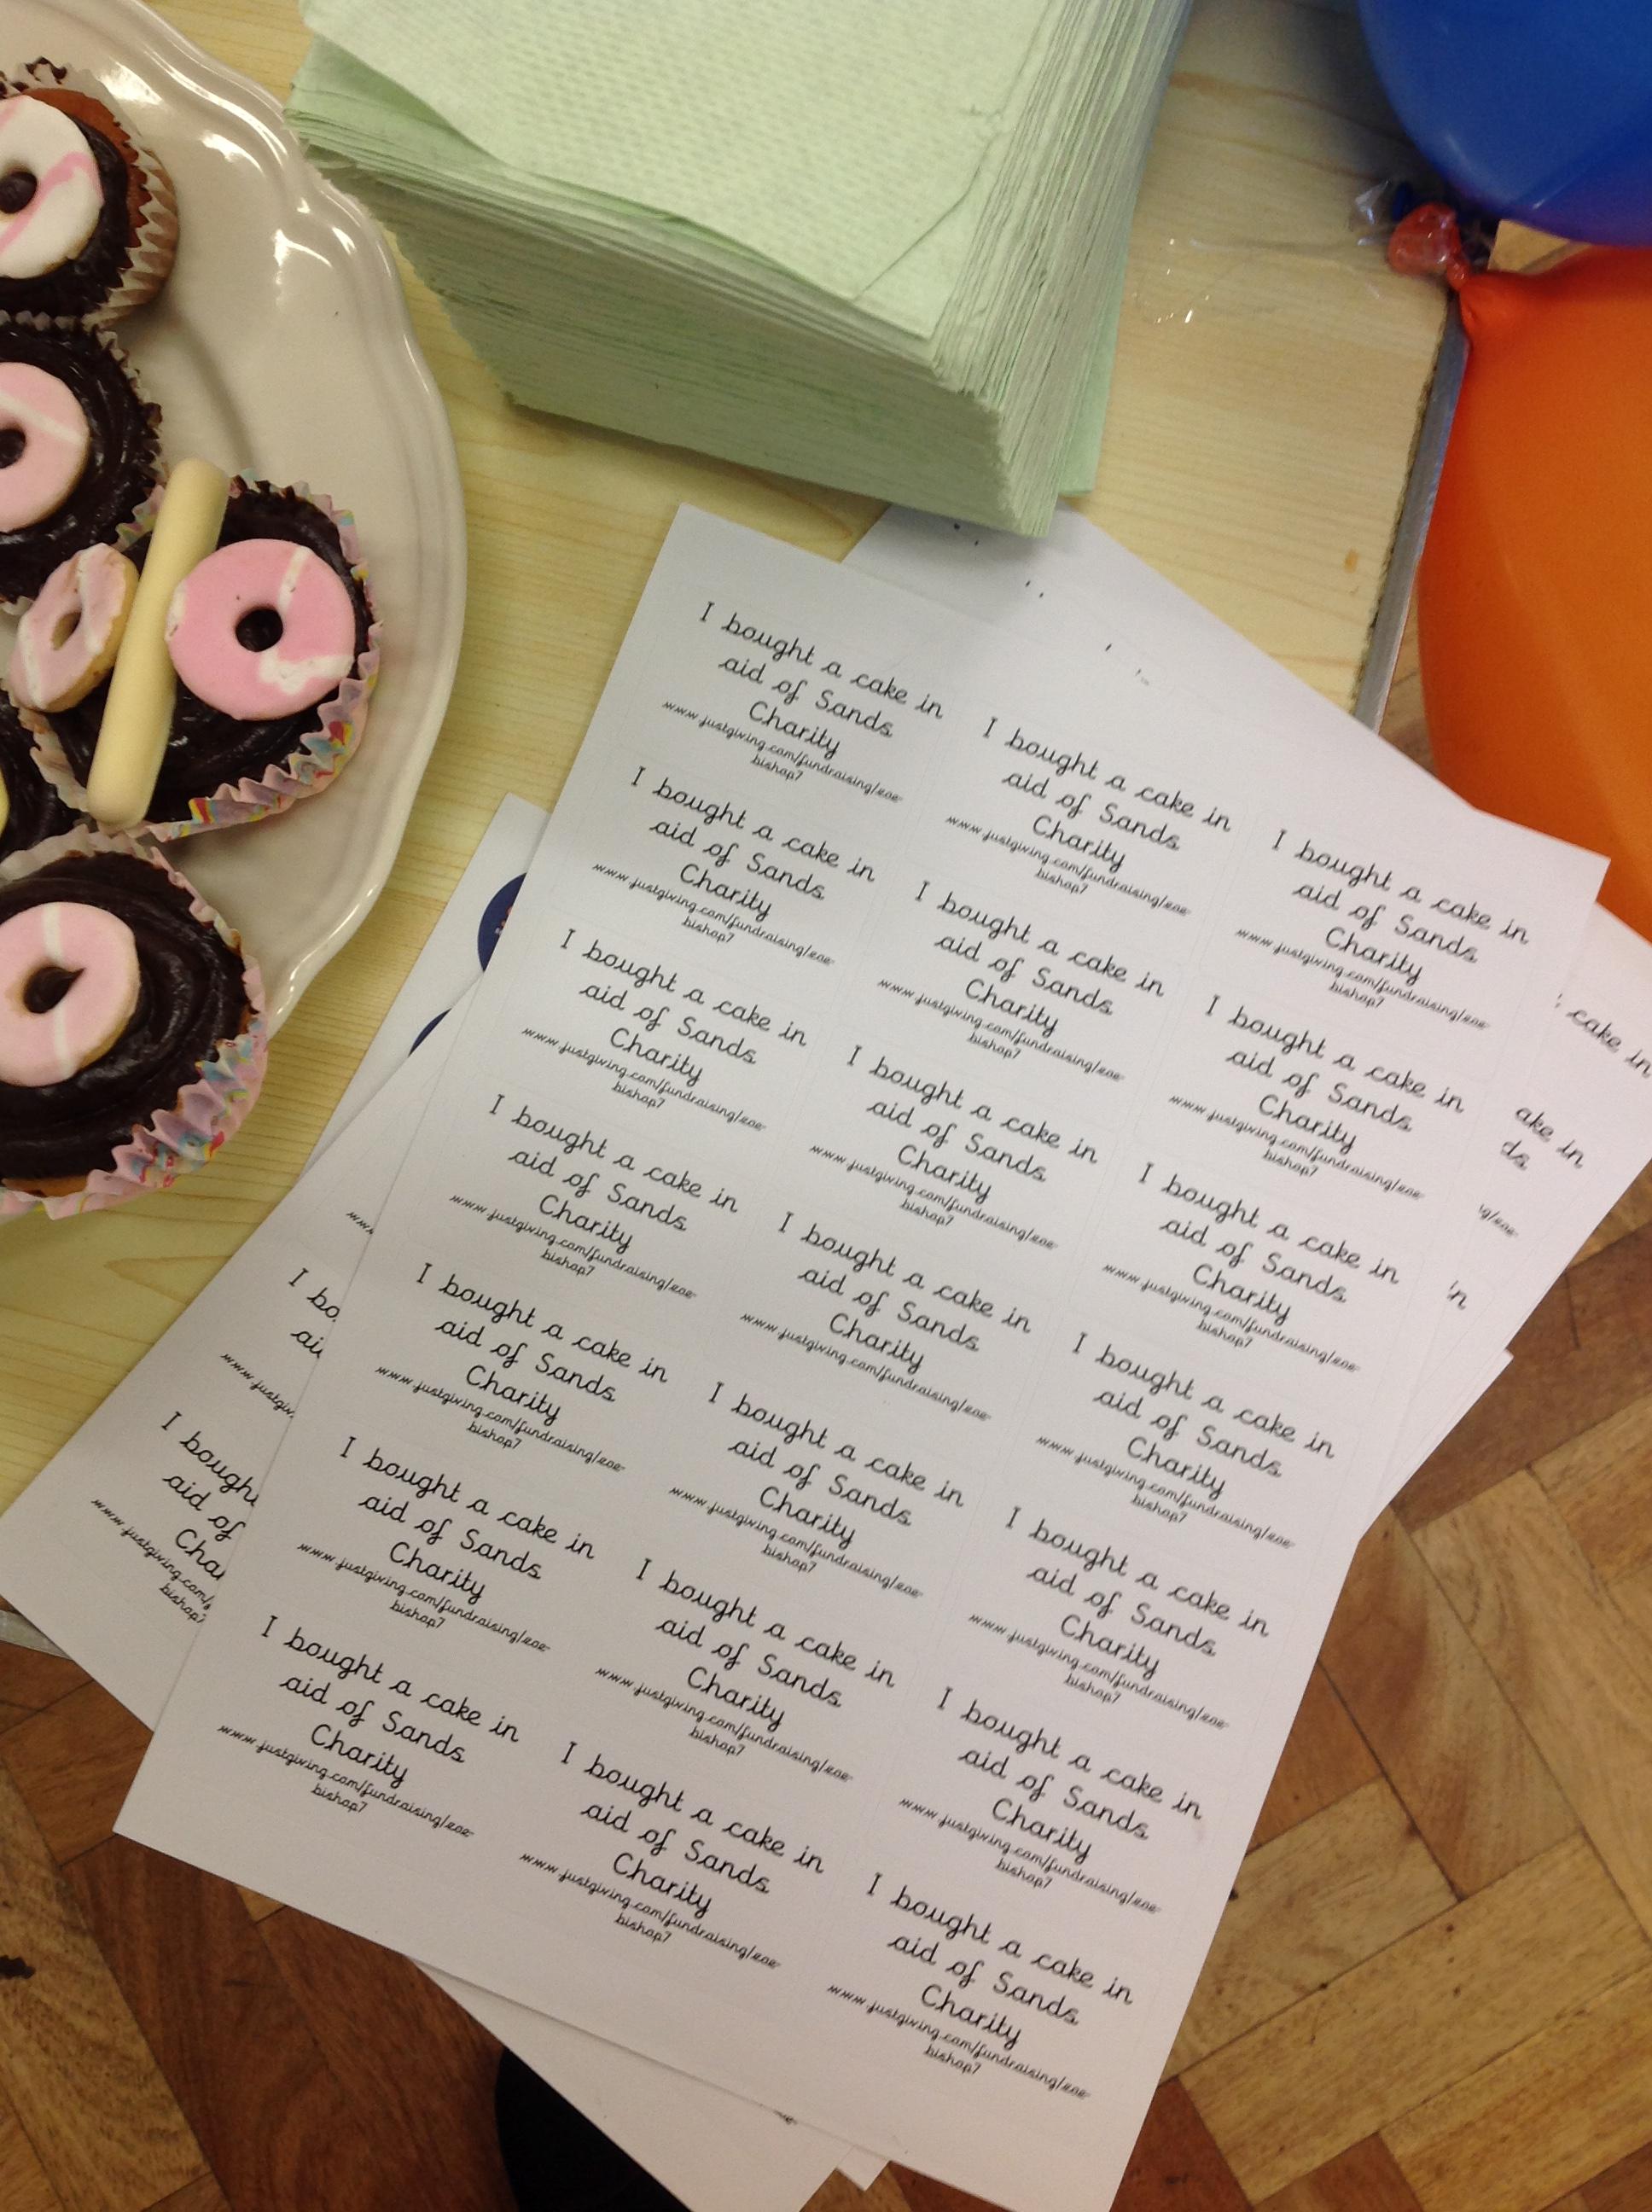 I bought a cake in
aid of Sands
Charity
www.justgiving.com/fundraising/zoe-
bishop7
I bought a cake in
aid of Sands
Charity
www.justgiving.com/fundraising/zoe-
bishop7
I bought a cake in
aid of Sands
Charity
www.justgiving.com/fundraising/zoe-
bishop7
I bought a cake in
aid of Sands
Charity
www.justgiving.com/fundraising/zoe-
bishop7
I bought a cake in
aid of Sands
Charity
www.justgiving.com/fundraising/zoe-
bishop7
I bought a cake in
aid of Sands
Charity
www.justgiving.com/fundraising/zoe-
bishop7
I bought a cake in
aid of Sands
Charity
www.justgiving.com/fundraising/zoe-
bishop7
I bought a cake in
aid of Sands
Charity
www.justgiving.com/fundraising/zoe-
bishop7
I bought a cake in
aid of Sands
Charity
www.justgiving.com/fundraising/zoe-
bishop7
I bought a cake in
aid of Sands
Charity
www.justgiving.com/fundraising/zoe-
bishop7
I bought a cake in
aid of Sands
Charity
www.justgiving.com/fundraising/zoe-
I bought a cake in
aid of Sands
Charity
www.justgiving.com/fundraising/zoe-
bishop7
I bought a cake in
aid of Sands
Charity
www.justgiving.com/fundraising/zoe-
bishop7
I bought a cake in
aid of Sands
Charity
www.justgiving.com/fundraising/zoe-
bishop7
I bought a cake in
aid of Sands
Charity
www.justgiving.com/fundraising/zoe-
bishop7
I bought a cake in
aid of Sands
Charity
www.justgiving.com/fundraising/zoe-
bishop7
I bought a cake in
aid of Sands
Charity
www.justgiving.com/fundraising/zoe-
bishop7
I bought a cake in
aid of Sands
Charity
www.justgiving.com/fundraising/zoe-
bishop7
I bought a cake in
aid of Sands
Charity
www.justgiving.com/fundraising/zoe-
bishop7
I bought a cake in
aid of Sands
Charity
www.justgiving.com/fundraising/zoe-
bishop7
I bought a cake in
aid of Sands
Charity
www.justgiving.com/fundraising/zoe-
bishop7
www
I bo
aid
www.justgiv
I bought
aid of
Cha
www.justgiving.com/
bishop7
cake in
ake in
ds
g/zoe-
in